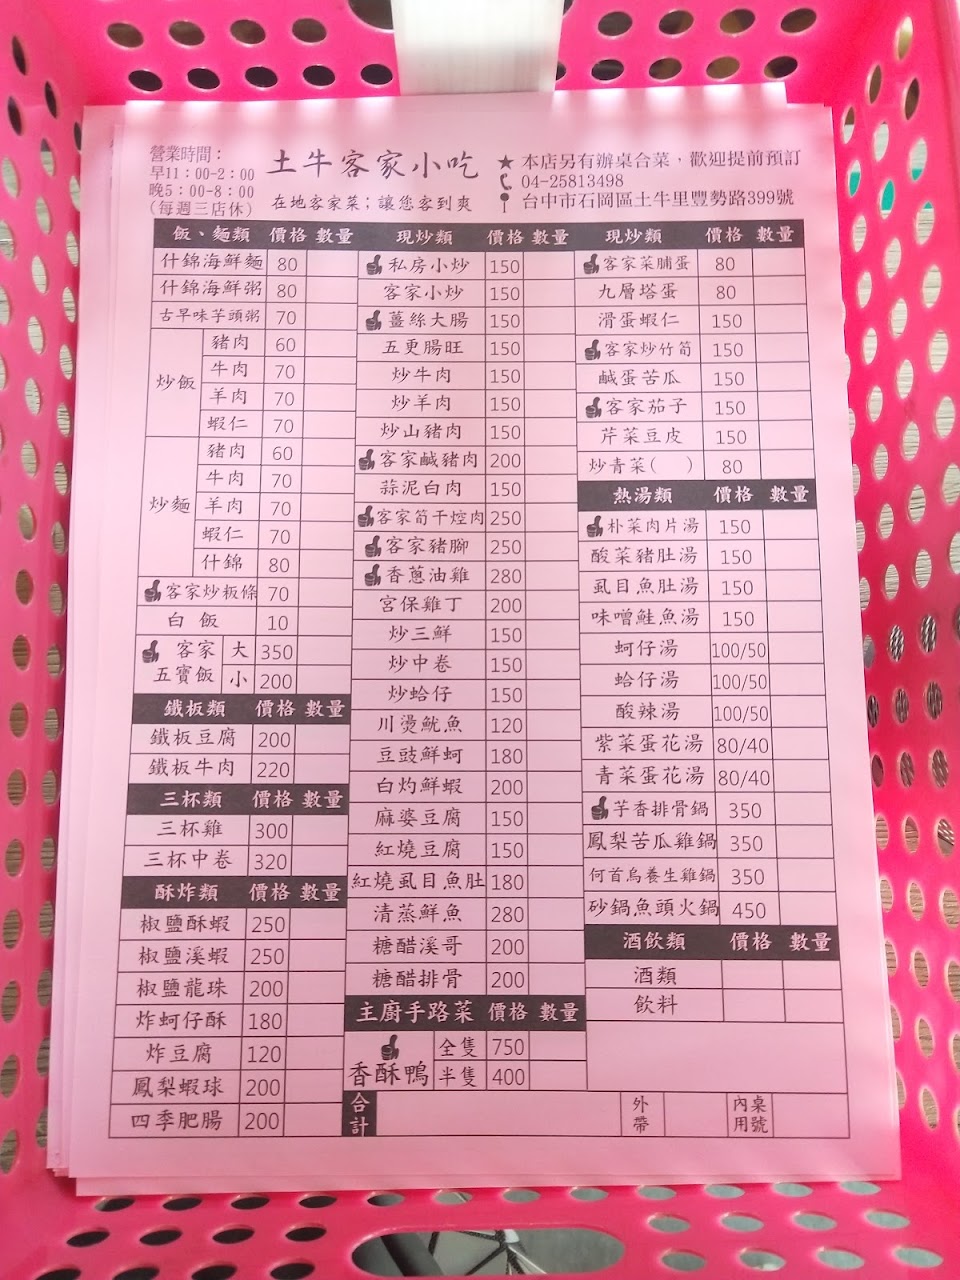 營業時間：
早11：00-2：00
晚5：00-8：00
(每週三店休)
土牛客家小吃
在地客家菜；讓您客到爽
★ 本店另有辦桌合菜，歡迎提前預訂
04-25813498
台中市石岡區土牛里豐勢路399號
飯、麵類 價格 數量
什錦海鮮麵 80
什錦海鮮粥 80
古早味芋頭粥 70
炒飯
豬肉 60
牛肉 70
羊肉 70
蝦仁 70
炒麵
豬肉 60
牛肉 70
羊肉 70
蝦仁 70
什錦 80
客家炒粄條 70
白飯 10
客家五寶飯
大 350
小 200
鐵板類 價格 數量
鐵板豆腐 200
鐵板牛肉 220
三杯類 價格 數量
三杯雞 300
三杯中卷 320
酥炸類 價格 數量
椒鹽酥蝦 250
椒鹽溪蝦 250
椒鹽龍珠 200
炸蚵仔酥 180
炸豆腐 120
鳳梨蝦球 200
四季肥腸 200
現炒類 價格 數量
私房小炒 150
客家小炒 150
薑絲大腸 150
五更腸旺 150
炒牛肉 150
炒羊肉 150
炒山豬肉 150
客家鹹豬肉 200
蒜泥白肉 150
客家筍干焢肉 250
客家豬腳 250
香蔥油雞 280
宮保雞丁 200
炒三鮮 150
炒中卷 150
炒蛤仔 150
川燙魷魚 120
豆豉鮮蚵 180
白灼鮮蝦 200
麻婆豆腐 150
紅燒豆腐 150
紅燒虱目魚肚 180
清蒸鮮魚 280
糖醋溪哥 200
糖醋排骨 200
主廚手路菜 價格 數量
香酥鴨
全隻 750
半隻 400
現炒類 價格 數量
客家菜脯蛋 80
九層塔蛋 80
滑蛋蝦仁 150
客家炒竹筍 150
鹹蛋苦瓜 150
客家茄子 150
芹菜豆皮 150
炒青菜(　) 80
熱湯類 價格 數量
朴菜肉片湯 150
酸菜豬肚湯 150
虱目魚肚湯 150
味噌鮭魚湯 150
蚵仔湯 100/50
蛤仔湯 100/50
酸辣湯 100/50
紫菜蛋花湯 80/40
青菜蛋花湯 80/40
芋香排骨鍋 350
鳳梨苦瓜雞鍋 350
何首烏養生雞鍋 350
砂鍋魚頭火鍋 450
酒飲類 價格 數量
酒類
飲料
合計
外帶
內用
桌號